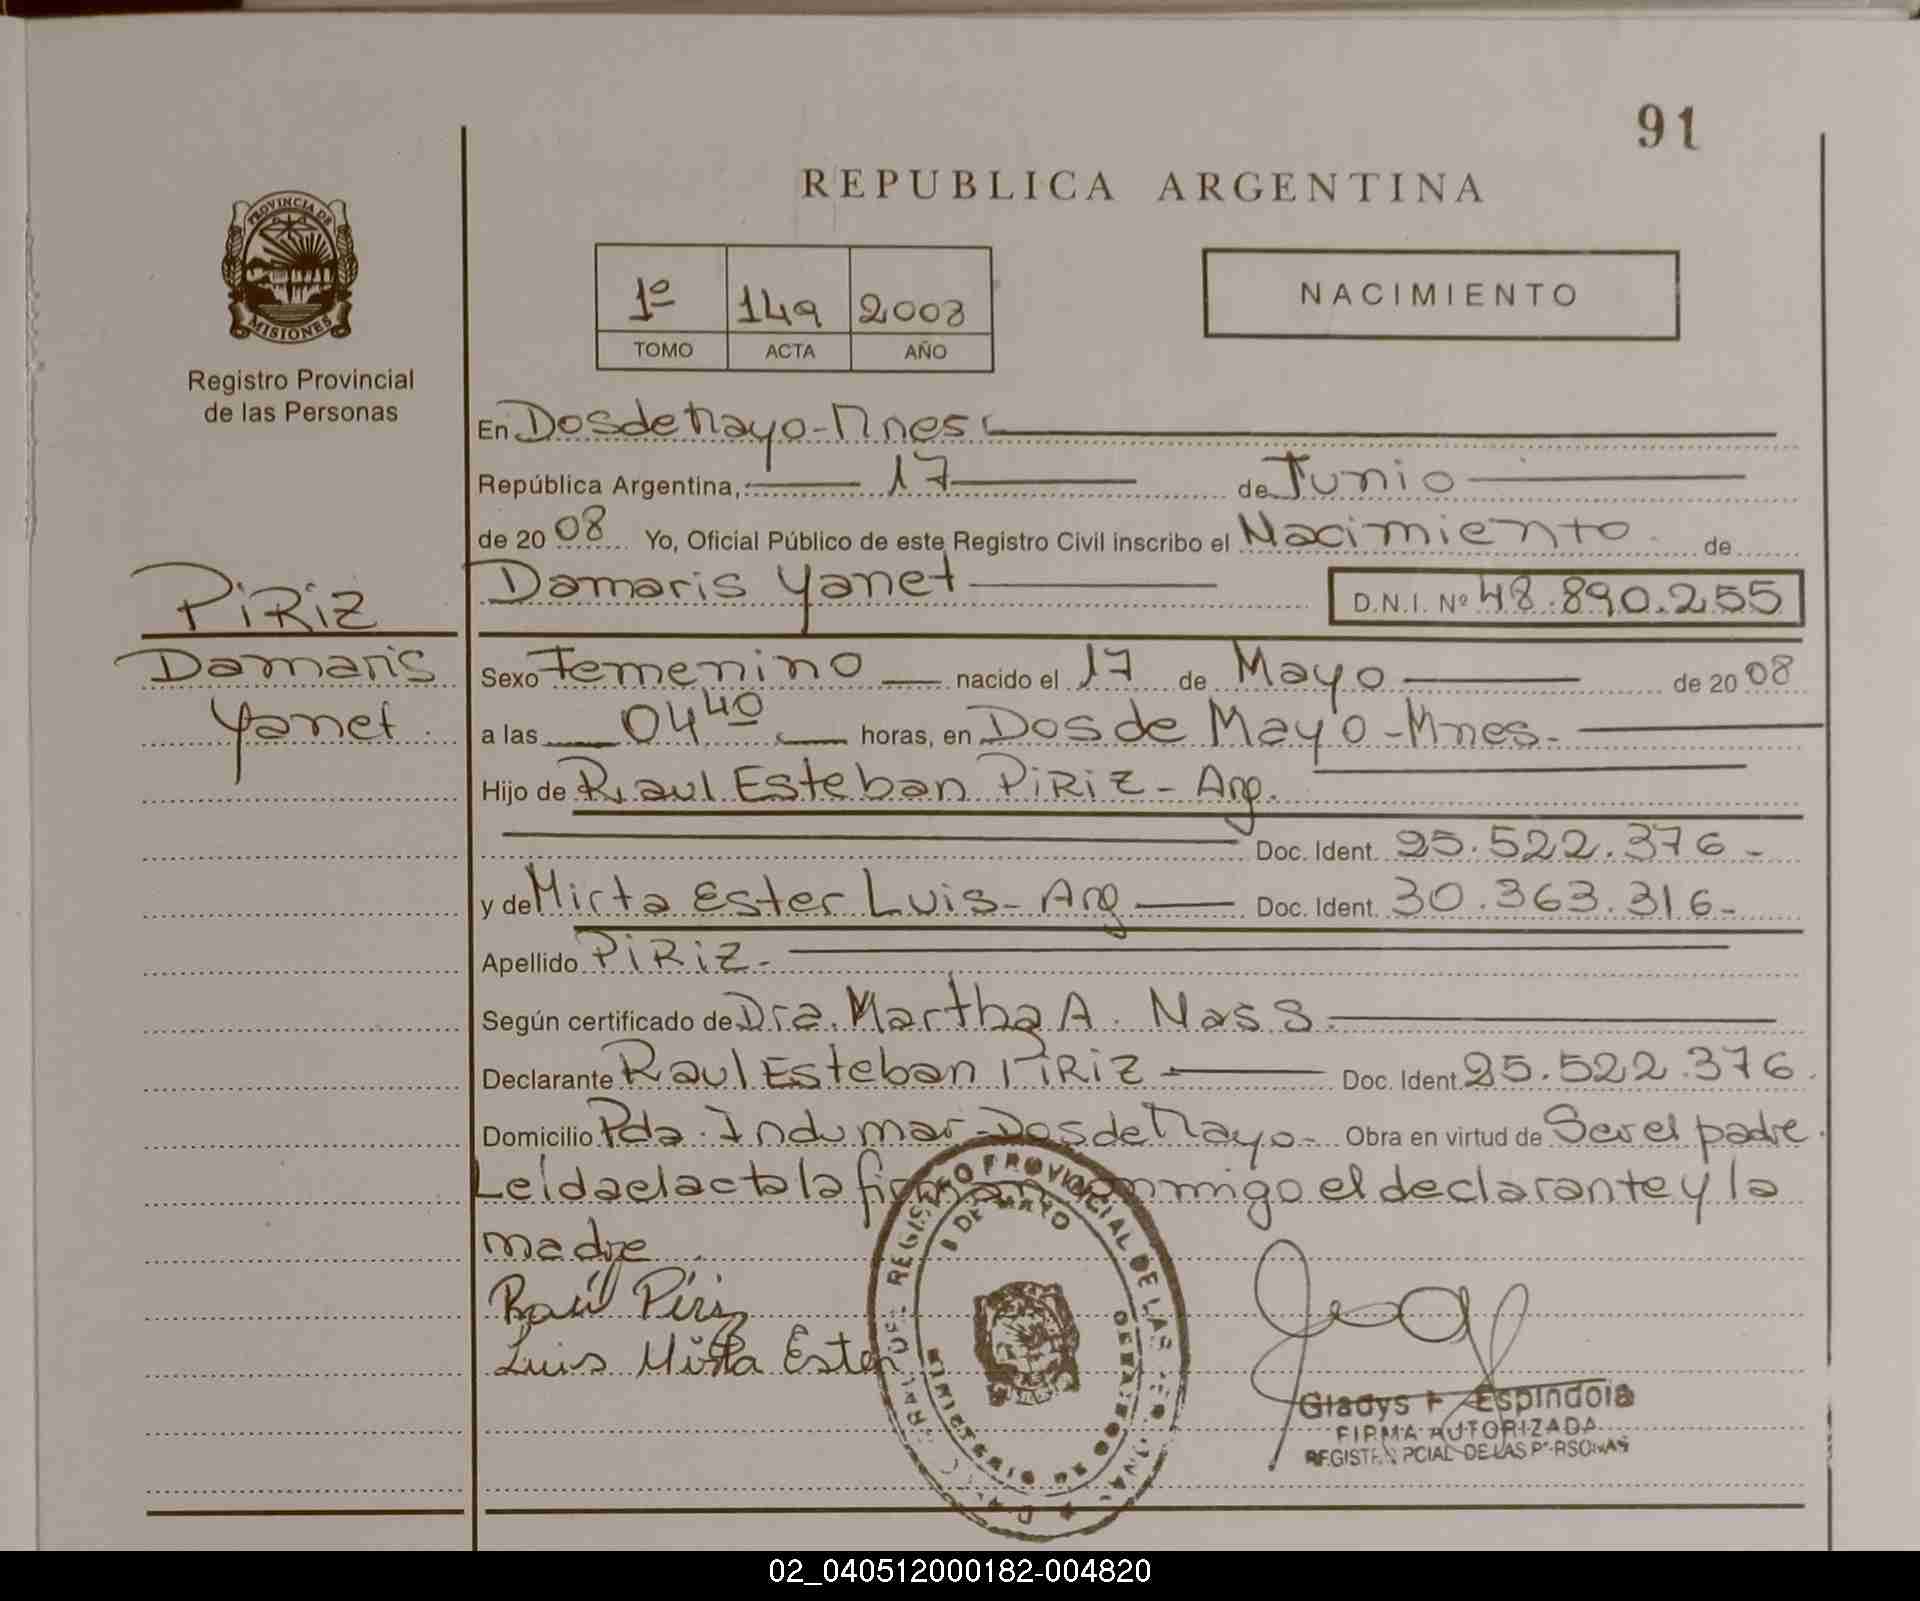 91
REPUBLICA ARGENTINA
PROVINCIA DE
MISIONES
Registro Provincial
de las Personas
1º 149 2008
TOMO ACTA AÑO
NACIMIENTO
En Dos de Mayo - Mnes
República Argentina, 17 de Junio
de 20 08 Yo, Oficial Público de este Registro Civil inscribo el Nacimiento de
Damaris Yanet D.N.I. Nº 48.890.255
PIRIZ
Damaris
Yanet
Sexo Femenino nacido el 17 de Mayo de 20 08
a las 04 40 horas, en Dos de Mayo - Mnes.
Hijo de Raul Esteban PIRIZ - Arg.
Doc. Ident. 25.522.376 -
y de Mirta Ester Luis - Arg Doc. Ident. 30.363.316 -
Apellido PIRIZ -
Según certificado de Dra. Martha A. Nass
Declarante Raul Esteban PIRIZ Doc. Ident. 25.522.376.
Domicilio Pda. Indumar - Dos de Mayo - Obra en virtud de Ser el padre.
Leída el acta la firman conmigo el declarante y la
madre
Raúl Piriz
Luis Mirta Ester
REGISTRO PROVINCIAL DE LAS
DE MAYO
Gladys Espindola
FIRMA AUTORIZADA
PCIAL DE LAS PERSONAS
02_040512000182-004820